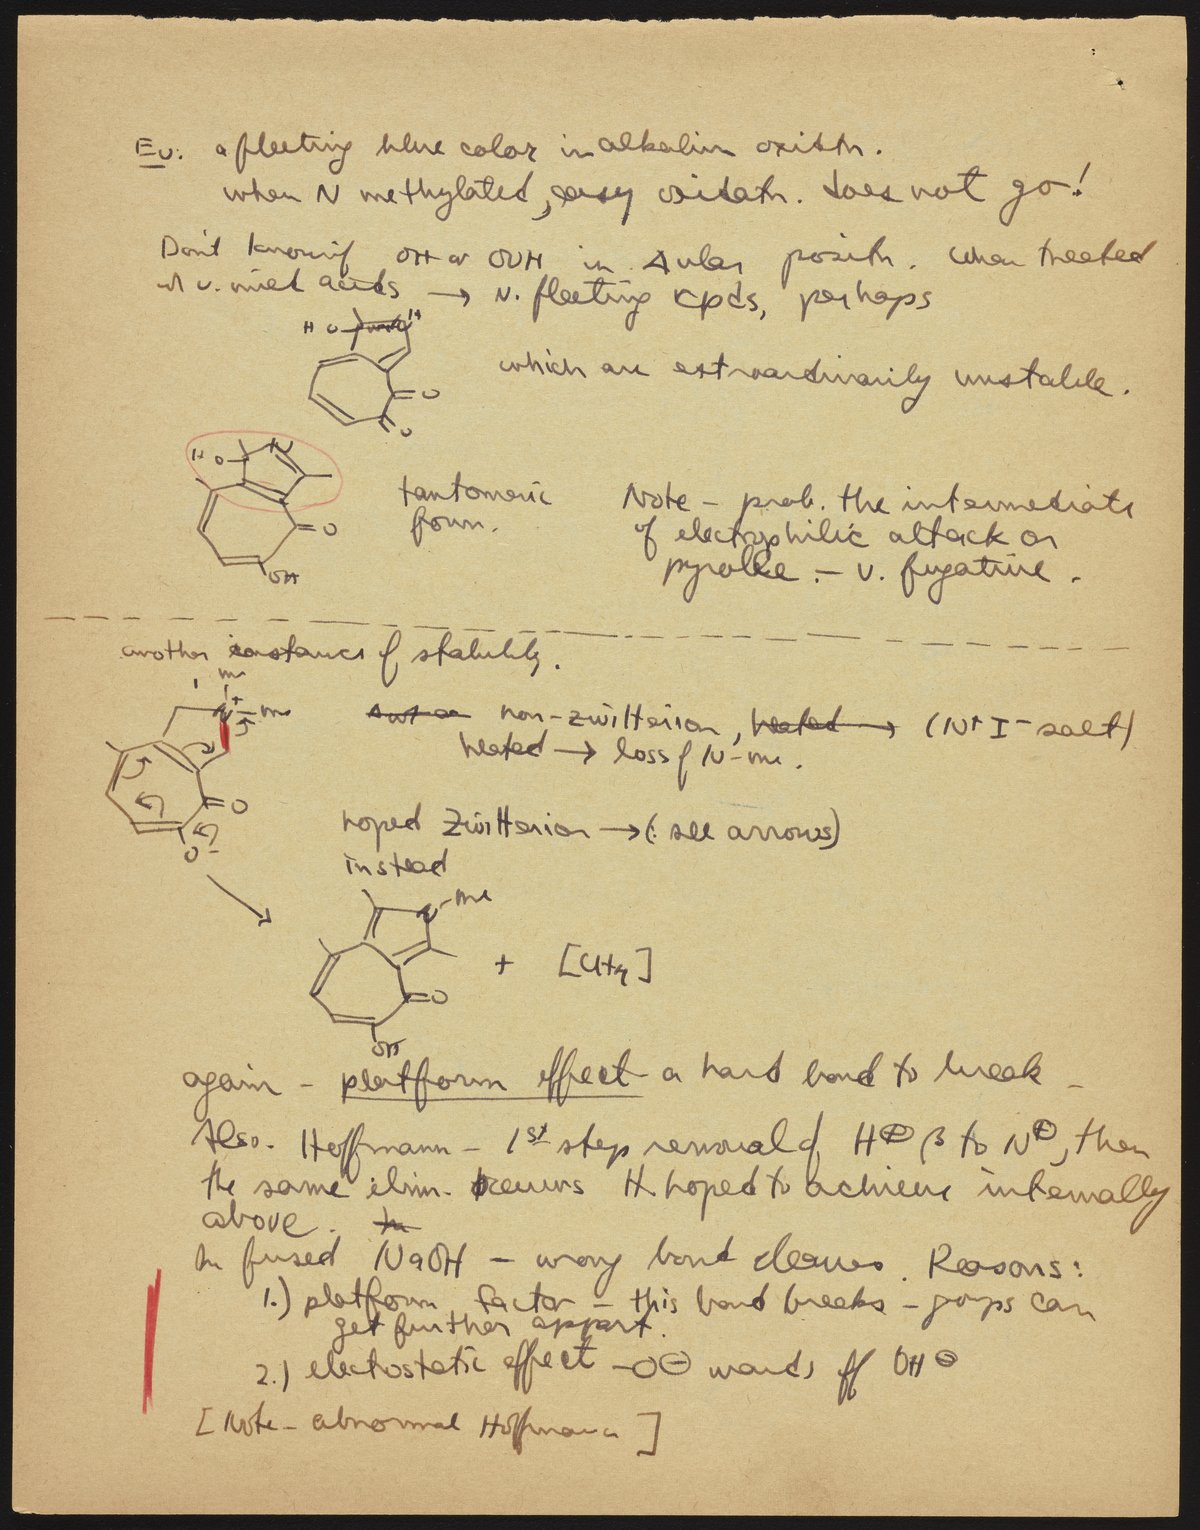 Ev. a fleeting blue color in alkalin oxidtn.
when N methylated, easy oxidatn. does not go!
Don't know if OH or OOH in Δular positn. When treated
w/ v. mild acids → v. fleeting cpds, perhaps
H O H
which are extraordinarily unstable.
O
O
H O N
tautomeric
form.
O
OH
Note - prob. the intermediate
of electrophilic attack on
pyrolle. - v. fugative.
another instance of stability.
me
N+ - me
non-zwitterion, heated → (N+ I- salt)
heated → loss of N-me.
O
O-
hoped Zwitterion → (: see arrows)
instead
N-me
+ [CH4]
O
OH
again - platform effect - a hard bond to break -
Also. Hoffmann - 1st step removal of H⊕ β to N⊕, then
the same elim. occurs H. hoped to achieve internally
above.
In fused NaOH - wrong bond cleaves. Reasons:
1.) platform factor - this bond breaks - grps can
get further appart.
2.) electrostatic effect -O⊖ wards off OH⊖
[Note - abnormal Hoffmann]